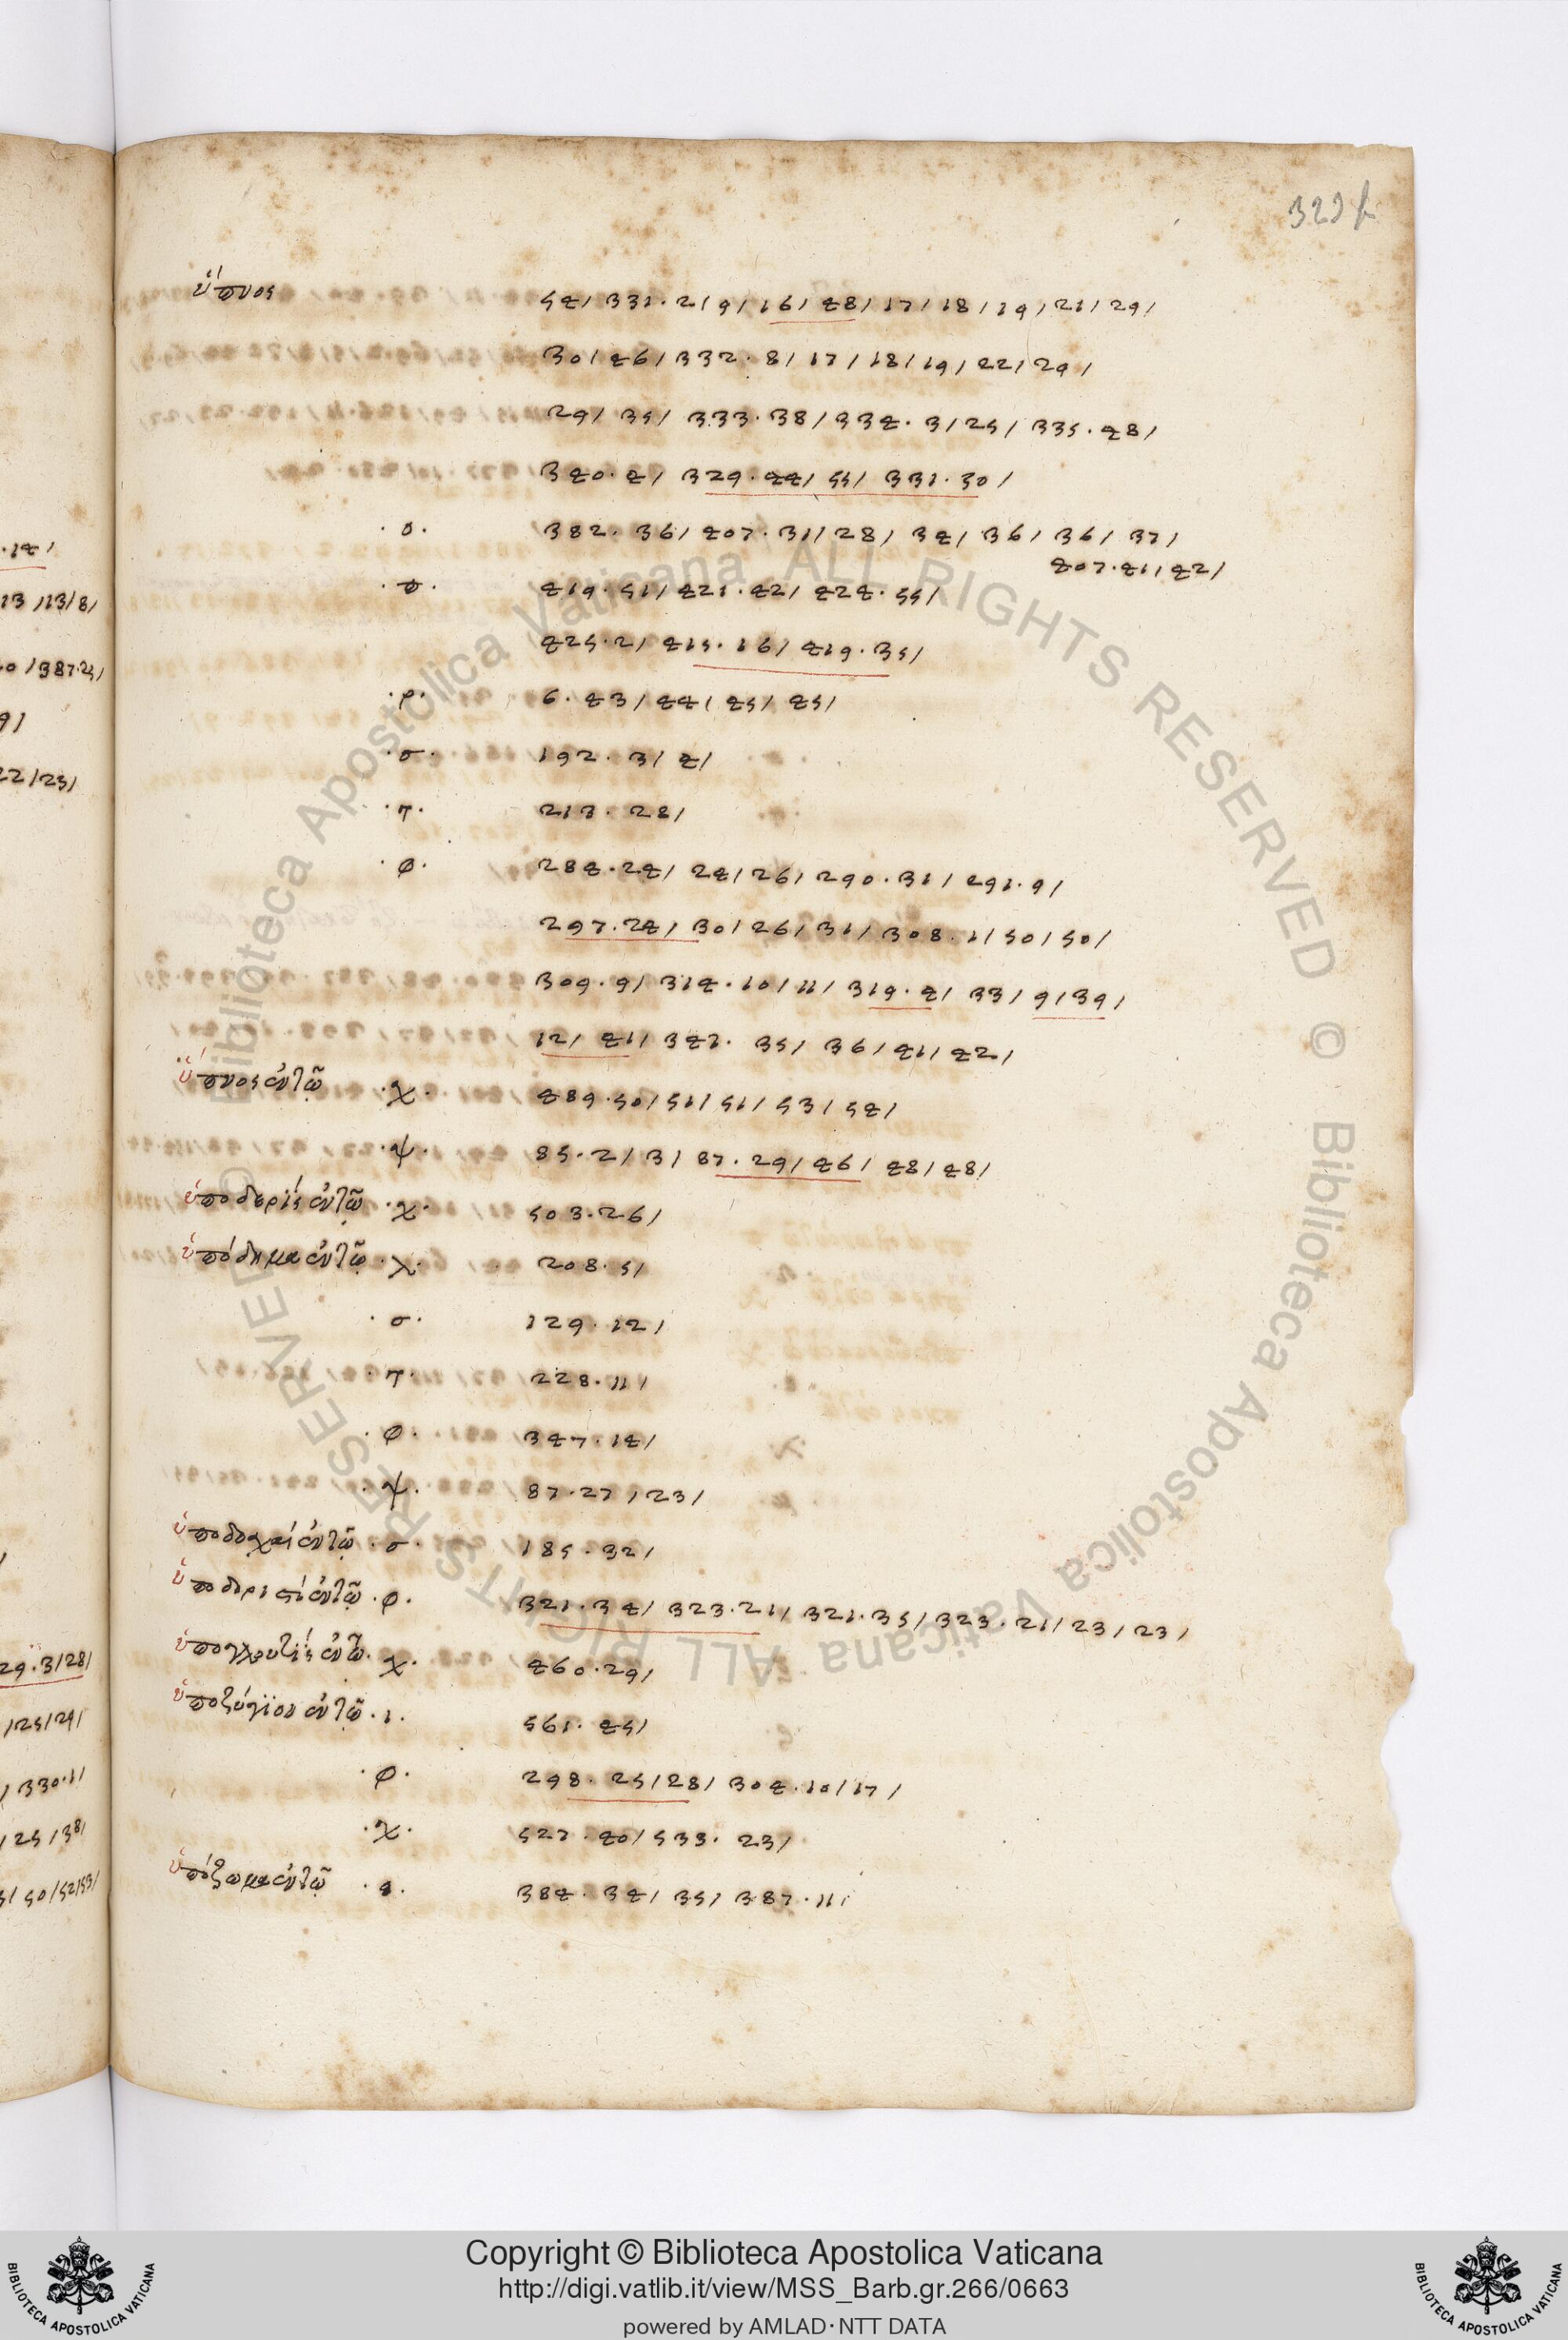 329r
ὕπνος 54/ 331·2/9/16/48/17/18/19/21/29/
30/46/332·8/17/18/19/22/29/
29/35/333·38/334·3/25/335·48/
340·4/329·44/55/331·30/
·ο· 382·36/407·31/28/34/36/36/37/
407·41/42/
·π· 419·51/421·42/424·55/
425·2/415·16/419·35/
·ρ· 6·43/44/45/45/
·σ· 192·3/4/
·τ· 213·28/
·φ· 284·24/24/26/290·31/291·9/
297·24/30/26/31/308·1/50/50/
309·9/314·10/11/319·4/33/9/39/
12/41/341·35/36/41/42/
ὕπνος ἐν τῷ ·χ· 489·50/51/51/53/54/
·ψ· 85·2/3/87·29/46/48/48/
ὑποδερὶς ἐν τῷ ·χ· 503·26/
ὑπόδημα ἐν τῷ ·χ· 208·5/
·σ· 129·12/
·τ· 228·11/
·φ· 347·14/
·ψ· 87·27/23/
ὑποδοχαὶ ἐν τῷ ·σ· 185·32/
ἐν τῷ ·φ· 321·34/323·21/321·35/323·21/23/23/
ἐν τῷ ·χ· 460·29/
ὑποζύγϊον ἐν τῷ ·ι· 561·45/
·φ· 298·25/28/304·10/17/
·χ· 527·40/533·23/
ὑπόζωμα ἐν τῷ 384·34/35/387·11/
·14/
13/13/8/
0/387·25/
9/
22/25/
29·3/28/
/25/29/
/330·1/
/25/38/
5/50/52/53/
Copyright © Biblioteca Apostolica Vaticana
http://digi.vatlib.it/view/MSS_Barb.gr.266/0663
powered by AMLAD·NTT DATA
BIBLIOTECA APOSTOLICA VATICANA
BIBLIOTECA APOSTOLICA VATICANA
© Biblioteca Apostolica Vaticana ALL RIGHTS RESERVED © Biblioteca Apostolica Vaticana ALL RIGHTS RESERVED